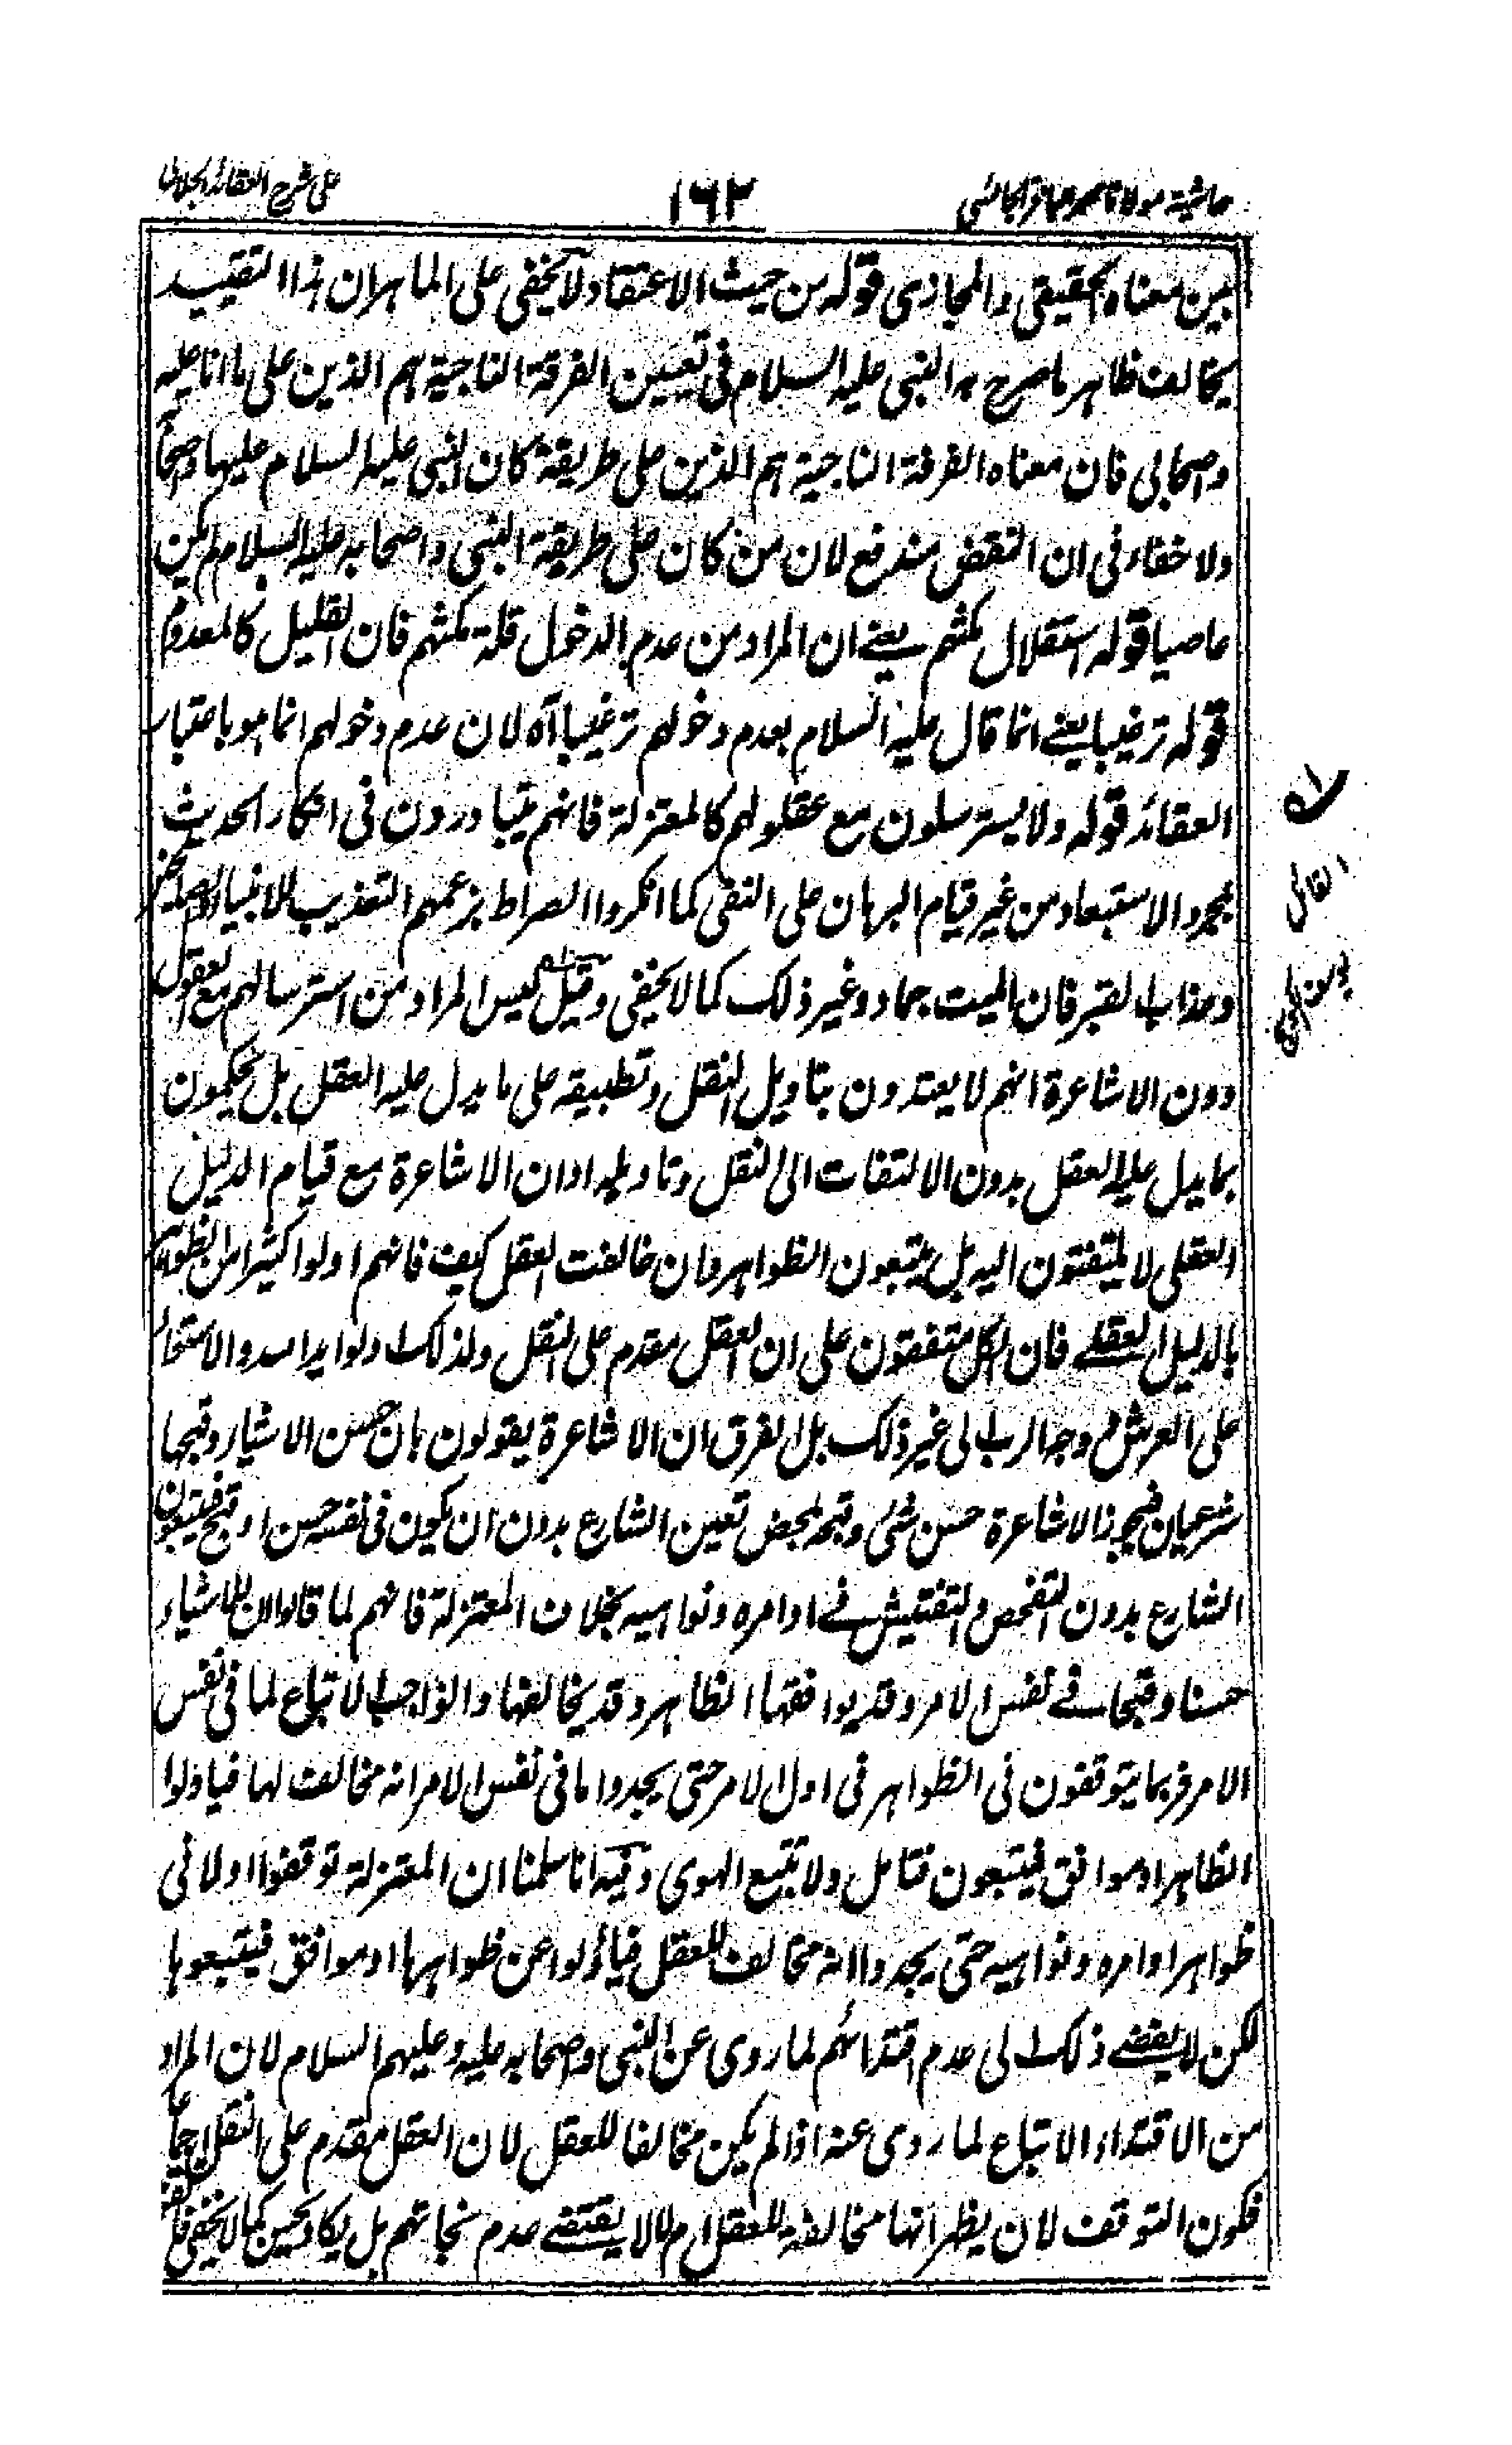 على شرح العقائد الجلالى
١٦٢
حاشية مولانا
بين معناه الحقيقى والمجازى قوله من حيث الاعتقاد ولا يخفى على الماهر ان هذا التقييد
يخالف ظاهر ما صرح به النبى عليه السلام فى تعيين الفرقة الناجية هم الذين على ما انا عليه
واصحابى فان معناه الفرقة الناجية هم الذين على طريقة كان النبى عليه السلام عليها واصحا
ولا خفاء فى ان النقض مندفع لان من كان على طريقة النبى واصحابه عليه السلام لم يكن
عاصيا قوله استقلال مكثهم يعنے ان المراد من عدم الدخول قلة مكثهم فان القليل كالمعدوم
قوله ترغيبا يعنے انما قال عليه السلام بعدم دخولهم ترغيبا آه لان عدم دخولهم انما هو باعتبار
العقائد قوله ولا يسترسلون مع عقولهم كالمعتزلة فانهم يتبادرون فى انكار الحديث
بمجرد الاستبعاد من غير قيام البرهان على النفى كما انكروا الصراط بزعمهم التعذيب للانبياء والصلحاء
وعذاب القبر فان الميت جماد وغير ذلك كما لا يخفى وقيل ليس المراد من استرسالهم مع العقول
دون الاشاعرة انهم لا يعتدون بتاويل النقل وتطبيقه على ما يدل عليه العقل بل يحكمون
بما يدل عليه العقل بدون الالتفات الى النقل وتاويله او ان الاشاعرة مع قيام الدليل
العقلى لا يلتفتون اليه بل يتبعون الظواهر وان خالفت العقل كيف فانهم اولوا كثيرا من الظواهر
بالدليل العقلے فان الكل متفقون على ان العقل مقدم على النقل ولذلك اولوا يد الله والاستواء
على العرش ووجه الرب الى غير ذلك بل الفرق ان الاشاعرة يقولون بان حسن الاشياء وقبحها
شرعيان فيجوز الاشاعرة حسن شئ وقبحه بمحض تعين الشارع بدون ان يكون فى نفسه حسن او قبح فيتبعون
الشارع بدون التفحص والتفتيش فے اوامره ونواهيه بخلاف المعتزلة فانهم لما قالوا ان للاشياء
حسنا وقبحا فے نفس الامر وقد يوافقها الظاهر وقد يخالفها والواجب الاتباع لما فى نفس
الامر فربما يتوقفون فى الظواهر فى اول الامر حتى يجدوا ما فى نفس الامر انه مخالف لها فياولوا
الظاهر او موافق فيتبعون فتامل ولا تتبع الهوى وفيه انا سلمنا ان المعتزلة توقفوا اولا فى
ظواهر اوامره ونواهيه حتى يجدوا انه مخالف للعقل فيأولوا عن ظواهرها او موافق فيتبعوها
لكن لا يفضے ذلك الى عدم اقتدائهم لما روى عن النبى واصحابه عليه وعليهم السلام لان المراد
من الاقتداء الاتباع لما روى عنه اذا لم يكن مخالفا للعقل لان العقل مقدم على النقل اجماعا
فكون التوقف لان يظهر انها مخالفة للعقل ام لا لا يقتضے عدم نجاتهم بل يكاد يحسن كما لا يخفى